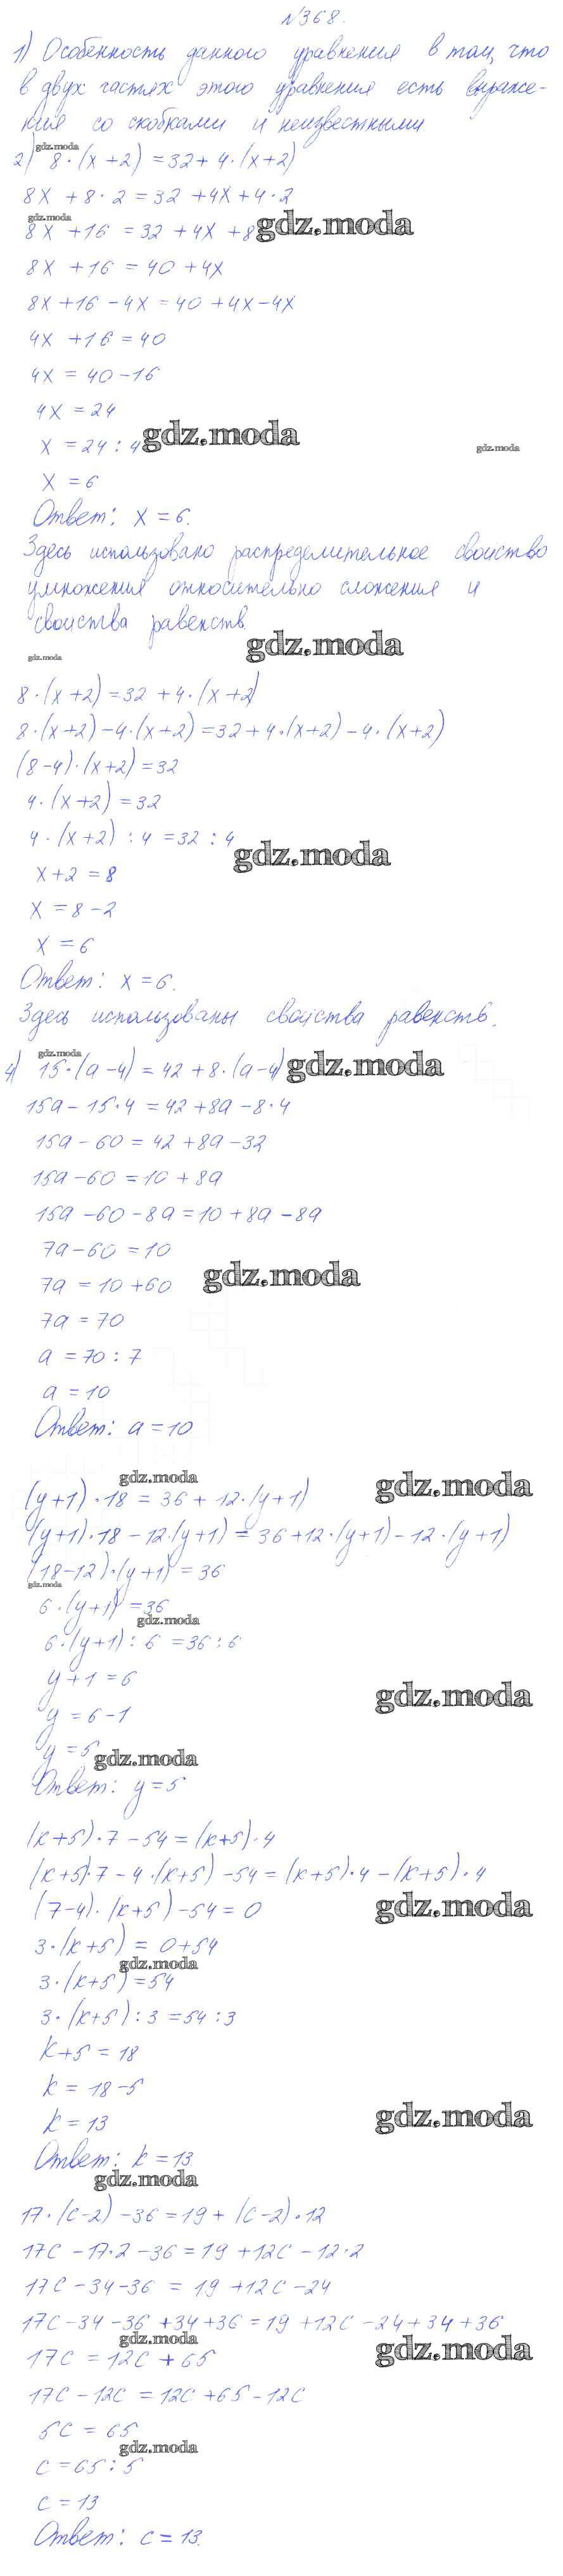 №368.
1) Особенность данного уравнения в том, что
в двух частях этого уравнения есть выраже-
ния со скобками и неизвестными
gdz.moda
2) 8·(x+2)=32+4·(x+2)
8x+8·2=32+4x+4·2
gdz.moda
8x+16=32+4x+8
gdz.moda
8x+16=40+4x
8x+16-4x=40+4x-4x
4x+16=40
4x=40-16
4x=24
x=24:4
gdz.moda
gdz.moda
x=6
Ответ: x=6.
Здесь использовано распределительное свойство
умножения относительно сложения и
свойства равенств.
gdz.moda
gdz.moda
8·(x+2)=32+4·(x+2)
8·(x+2)-4·(x+2)=32+4·(x+2)-4·(x+2)
(8-4)·(x+2)=32
4·(x+2)=32
4·(x+2):4=32:4
gdz.moda
x+2=8
x=8-2
x=6
Ответ: x=6.
Здесь использованы свойства равенств.
gdz.moda
4) 15·(a-4)=42+8·(a-4)
gdz.moda
15a-15·4=42+8a-8·4
15a-60=42+8a-32
15a-60=10+8a
15a-60-8a=10+8a-8a
7a-60=10
7a=10+60
gdz.moda
7a=70
a=70:7
a=10
Ответ: a=10
gdz.moda
gdz.moda
(y+1)·18=36+12·(y+1)
(y+1)·18-12·(y+1)=36+12·(y+1)-12·(y+1)
(18-12)·(y+1)=36
gdz.moda
6·(y+1)=36
gdz.moda
6·(y+1):6=36:6
y+1=6
gdz.moda
y=6-1
y=5
gdz.moda
Ответ: y=5
(k+5)·7-54=(k+5)·4
(k+5)·7-4·(k+5)-54=(k+5)·4-(k+5)·4
(7-4)·(k+5)-54=0
gdz.moda
3·(k+5)=0+54
gdz.moda
3·(k+5)=54
3·(k+5):3=54:3
k+5=18
k=18-5
k=13
gdz.moda
Ответ: k=13
gdz.moda
17·(c-2)-36=19+(c-2)·12
17c-17·2-36=19+12c-12·2
17c-34-36=19+12c-24
17c-34-36+34+36=19+12c-24+34+36
gdz.moda
gdz.moda
17c=12c+65
17c-12c=12c+65-12c
5c=65
gdz.moda
c=65:5
c=13
Ответ: c=13.